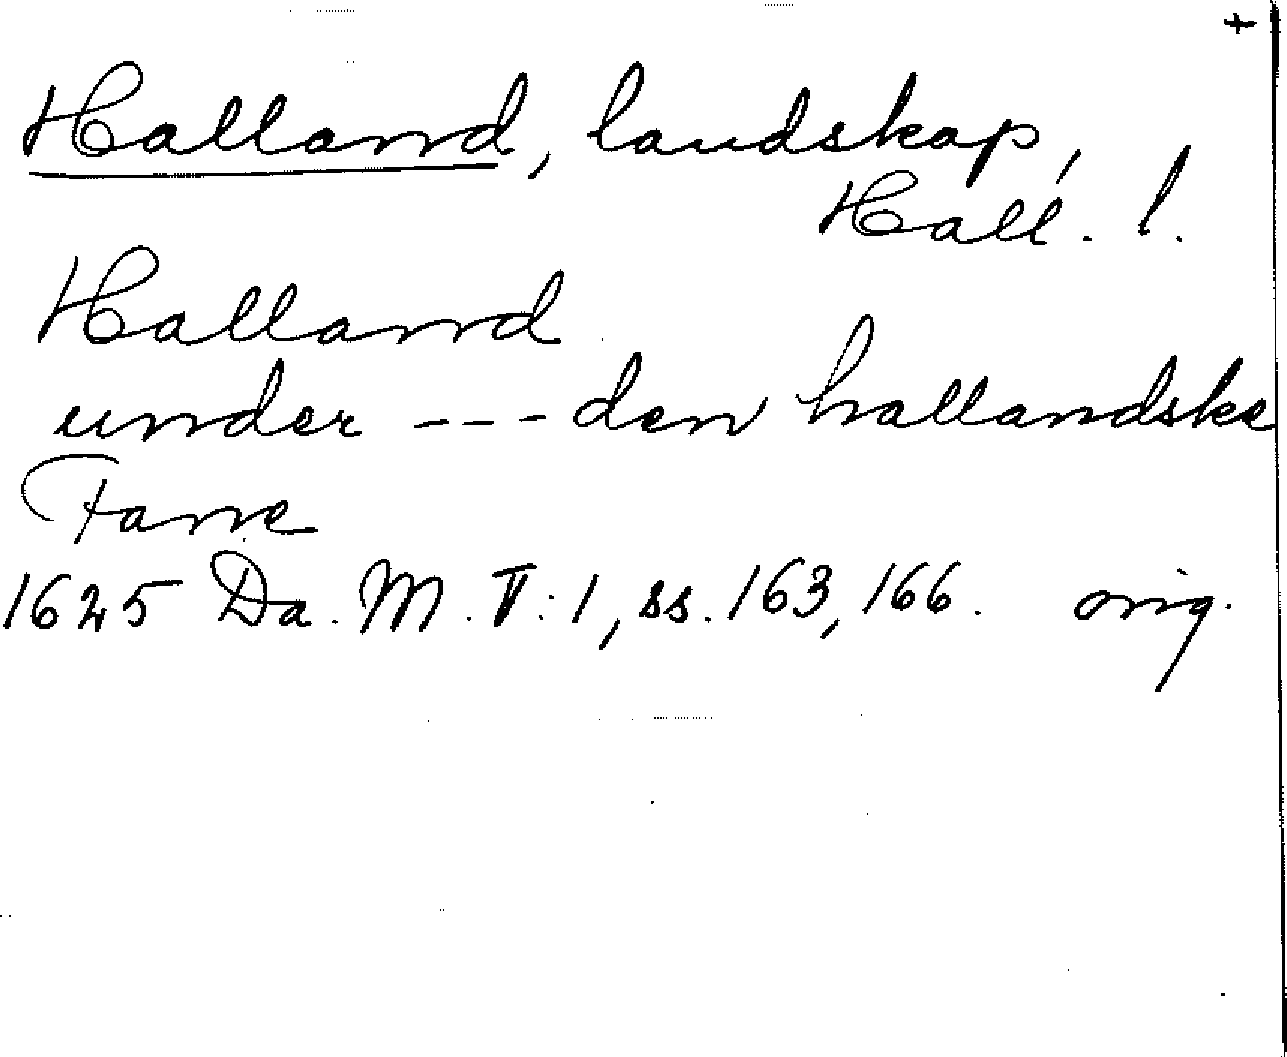 +
Halland, landskap,
Hall. l.
Halland
under --- den hallandske
Fane
1625 Da. M. V: 1, ss. 163, 166. orig.